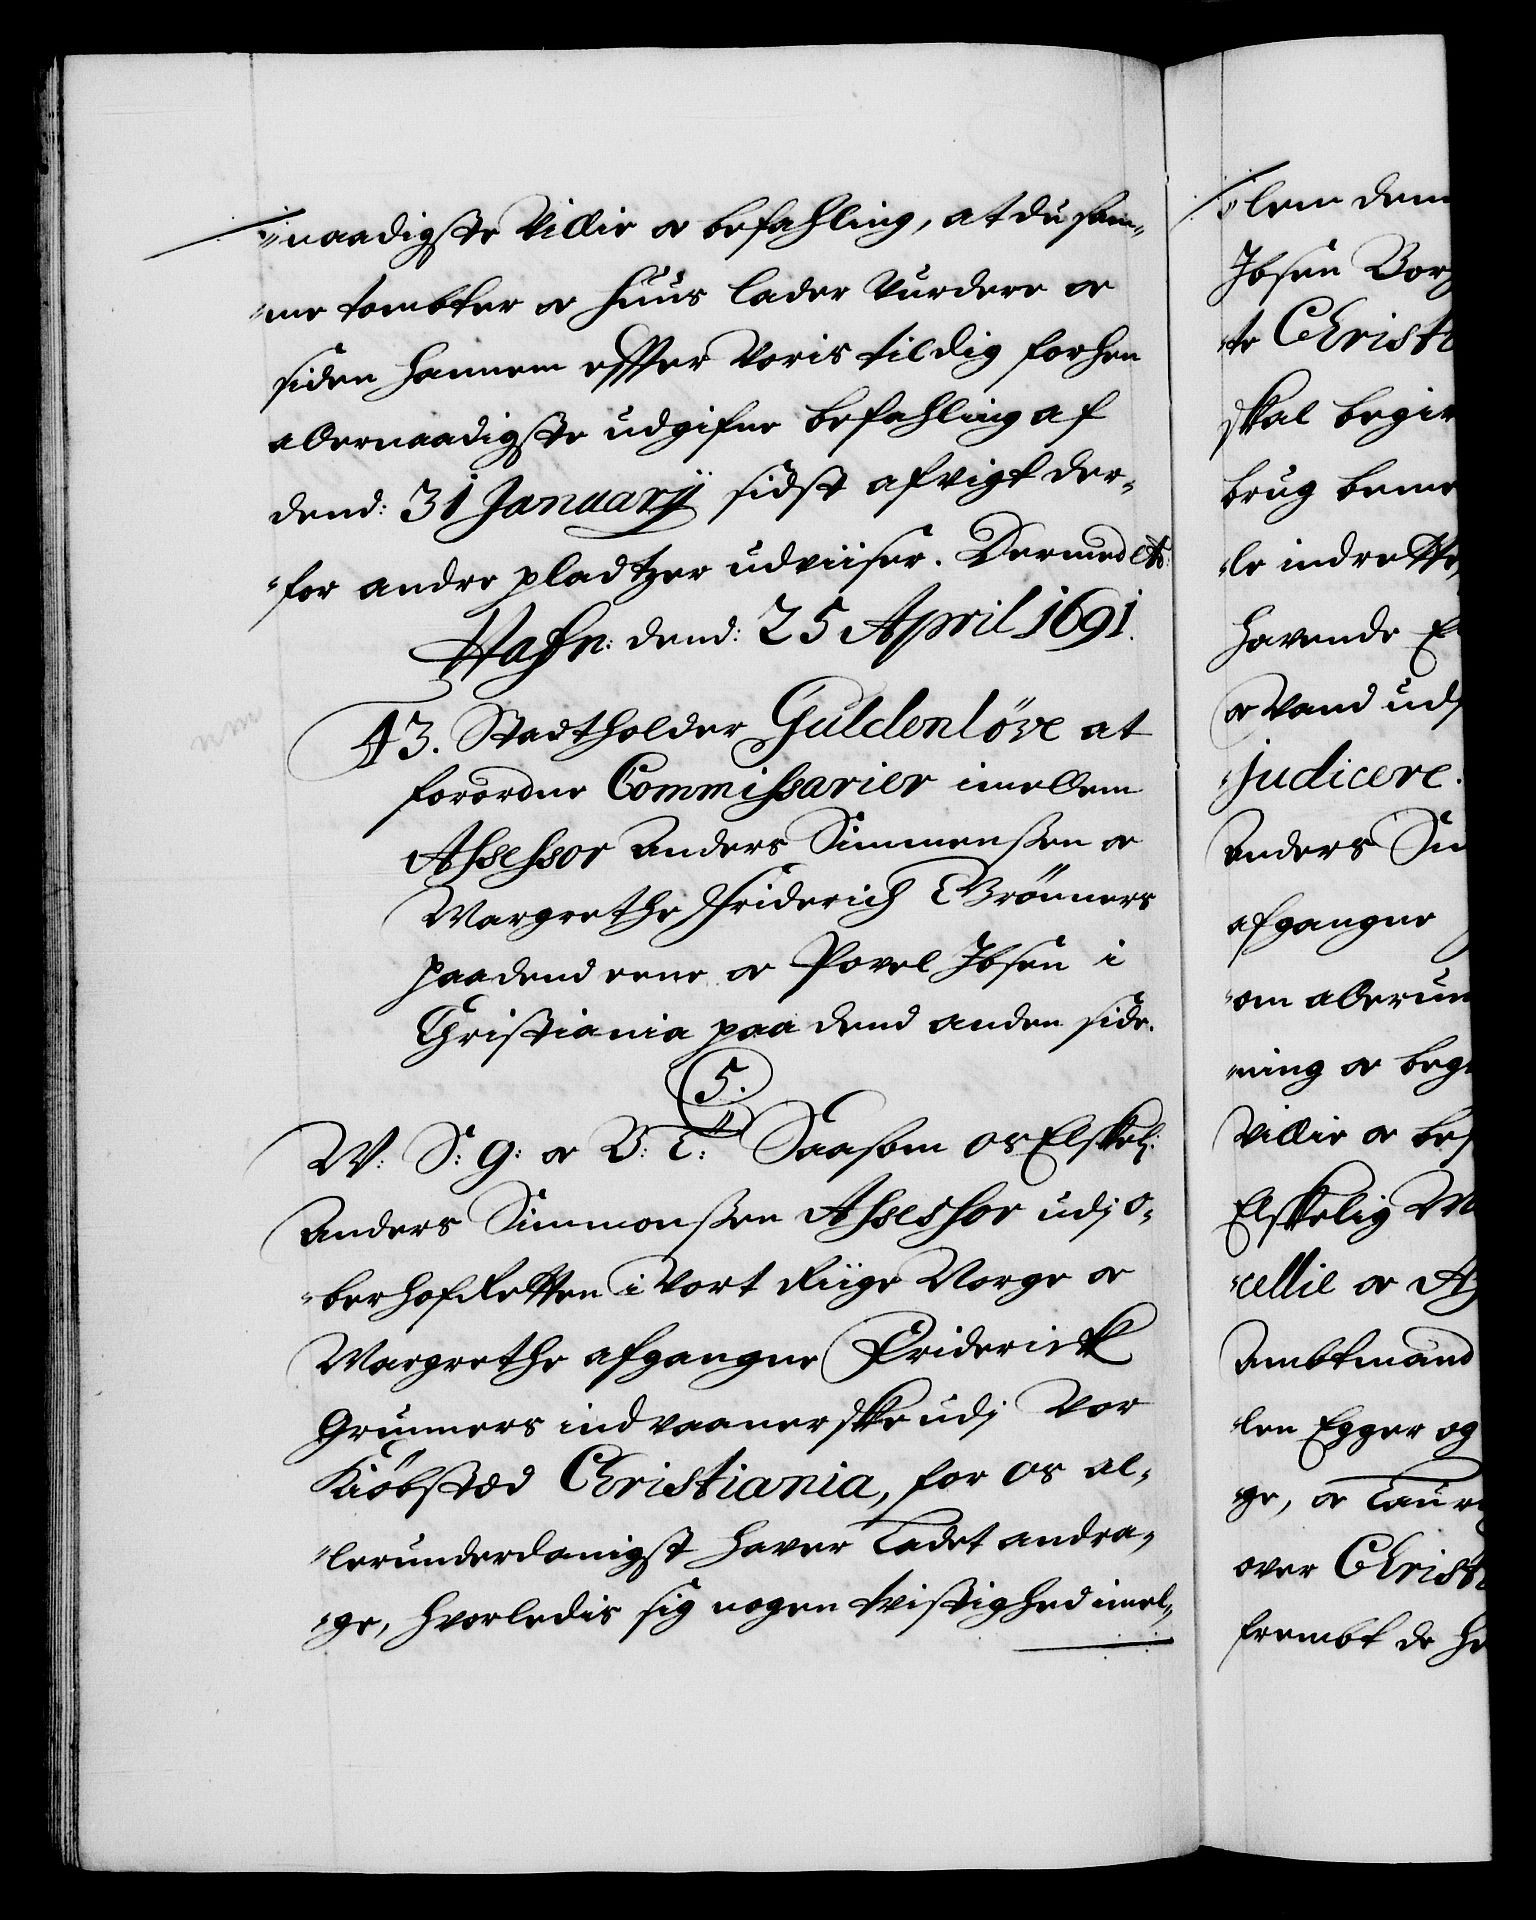 naadigste Villie oc befahling, at du sam-
me tombter oc huus lader Vurdere oc
siden hannem efter Voris til dig forhen
allernaadigste udgifne befahling af
dend: 31 Januarij sidst afvigt der-
for andre pladtzer udviiser. Dermed etc:
Hafn: dend: 25 April 1691.
43. Stadtholder Guldenlöwe at
forordne Commissarier imellem
Assessor Anders Simmensen oc
Margrethe Friderich Grönners
paa dend eene oc Povel Ibsen i
Christiania paa dend anden side.
5.
W: S: G: oc B: T: Saasom os Elskel:
Anders Simmonsen Assessor udj O-
berhofRetten i Vort Riige Norge oc
Margrethe afgangne Friderick
Grunners indvaanerske udj Vor
Kiöbsted Christiania, for os al-
lerunderdanigst haver Ladet andra-
ge, hvorledis sig nogen tvistighed imel-
lem dem
Ibsen Borg
te Christi
skal begier
brug beme
le indrette,
havende El
oc Vand uds
judicere.
Anders Sim
afgangne
om allerun
ning oc beg
Villie oc bef
Elskelig M
cellie oc As
Ambtmand
len Egger og
ge, oc Laur
over Christi
frembt de ha